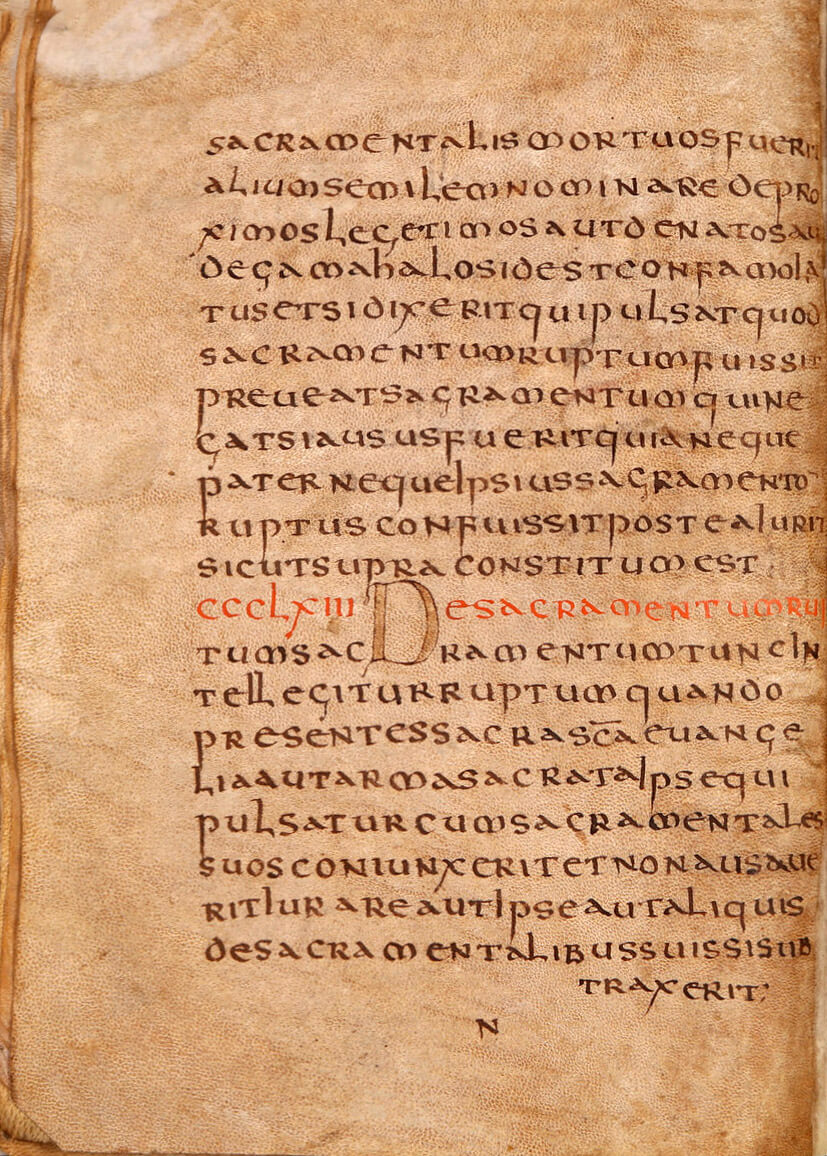 sacramentalis mortuos fueri
alium semilem nominare de pro
ximos legetimos aut de natos au
de gamahalos id est confamola
tus et si dixerit qui pulsat quod
sacramentum ruptum fuissit
preueat sacramentum qui ne
gat si ausus fuerit quia neque
pater neque ipsius sacramento
ruptus confuissit postea iurit
sicut supra constitutum est
CCCLXIII De sacramentum ru
tum sacramentum tunc in
tellegitur ruptum quando
presentes sacrasca euange
lia aut arma sacrata ipse qui
pulsatur cum sacramentales
suos coniunxerit et non ausaue
rit iurare aut ipse aut aliquis
de sacramentalibus suis si sub
traxerit;
N